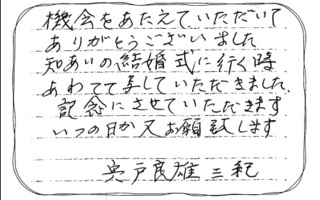 機会をあたえていただいて
ありがとうございました
知あいの結婚式に行く時
あわてて写していただきました.
記念にさせていただきます
いつの日か又お願致します
宍戸良雄 三紀